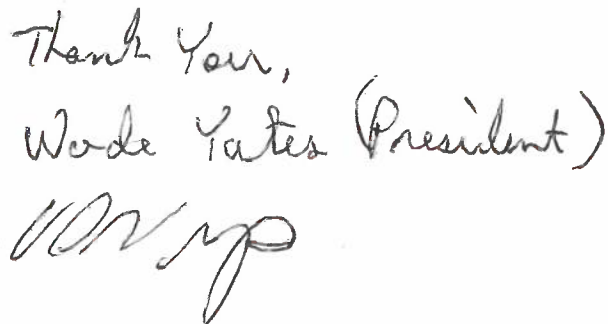 Thank You,
Wade Yates (President)